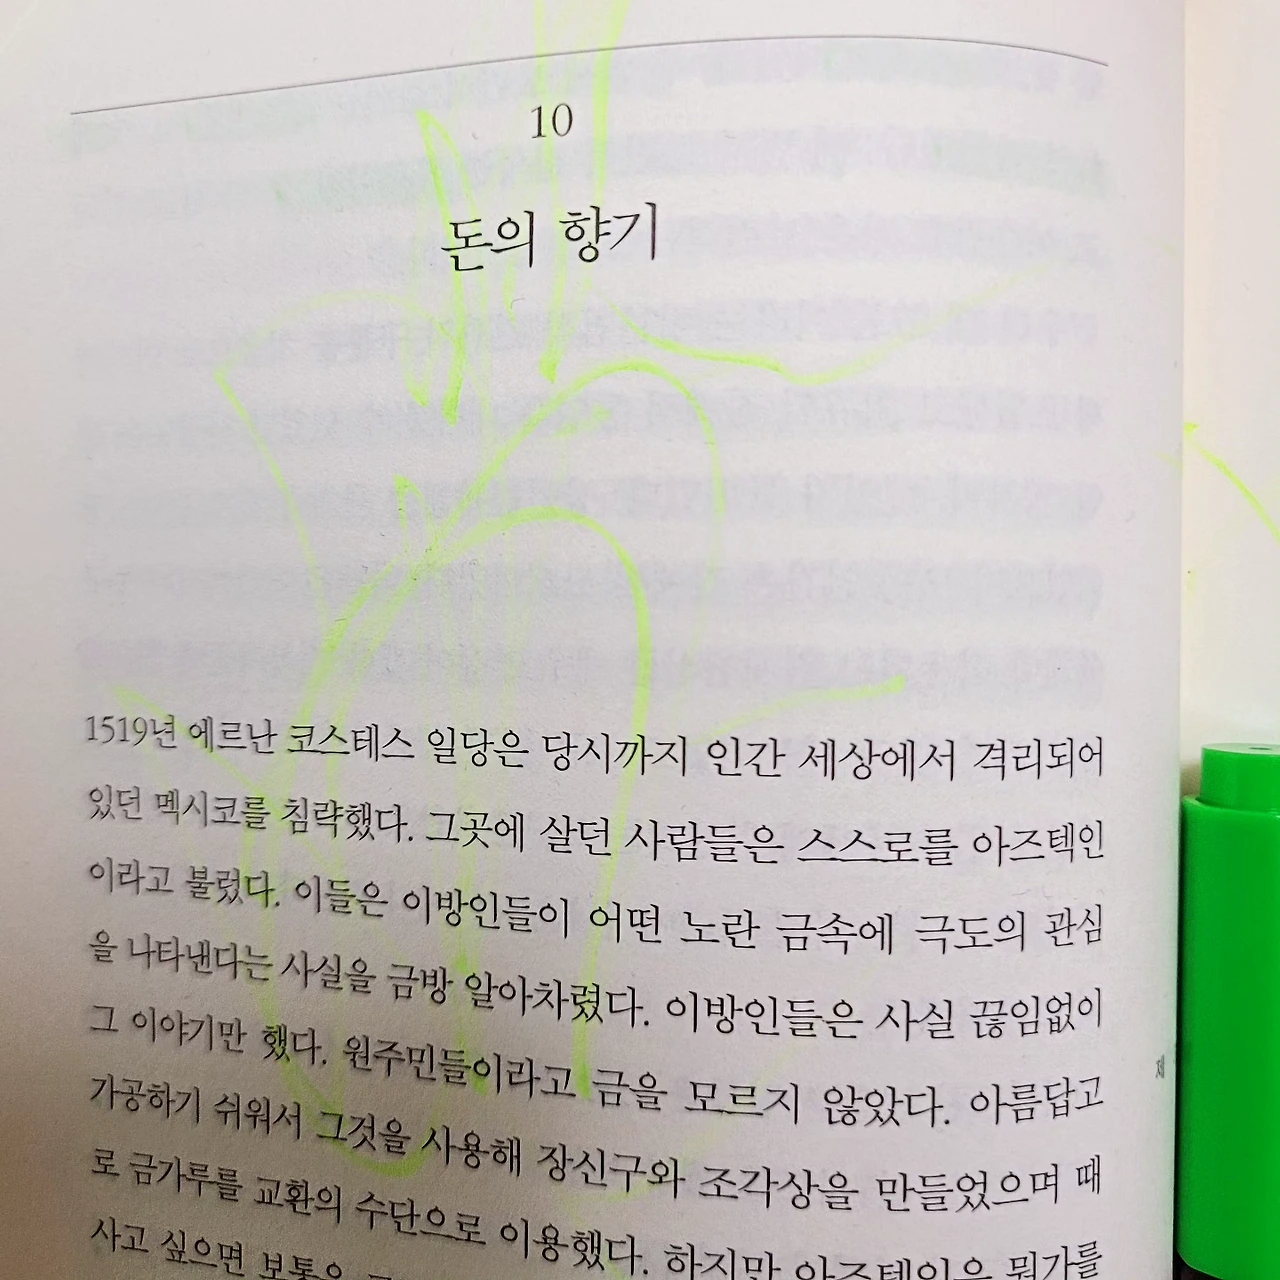 10
돈의 향기
1519년 에르난 코스테스 일당은 당시까지 인간 세상에서 격리되어
있던 멕시코를 침략했다. 그곳에 살던 사람들은 스스로를 아즈텍인
이라고 불렀다. 이들은 이방인들이 어떤 노란 금속에 극도의 관심
을 나타낸다는 사실을 금방 알아차렸다. 이방인들은 사실 끊임없이
그 이야기만 했다. 원주민들이라고 금을 모르지 않았다. 아름답고
가공하기 쉬워서 그것을 사용해 장신구와 조각상을 만들었으며 때
로 금가루를 교환의 수단으로 이용했다. 하지만 아즈텍인은 뭔가를
사고 싶으면 보통은